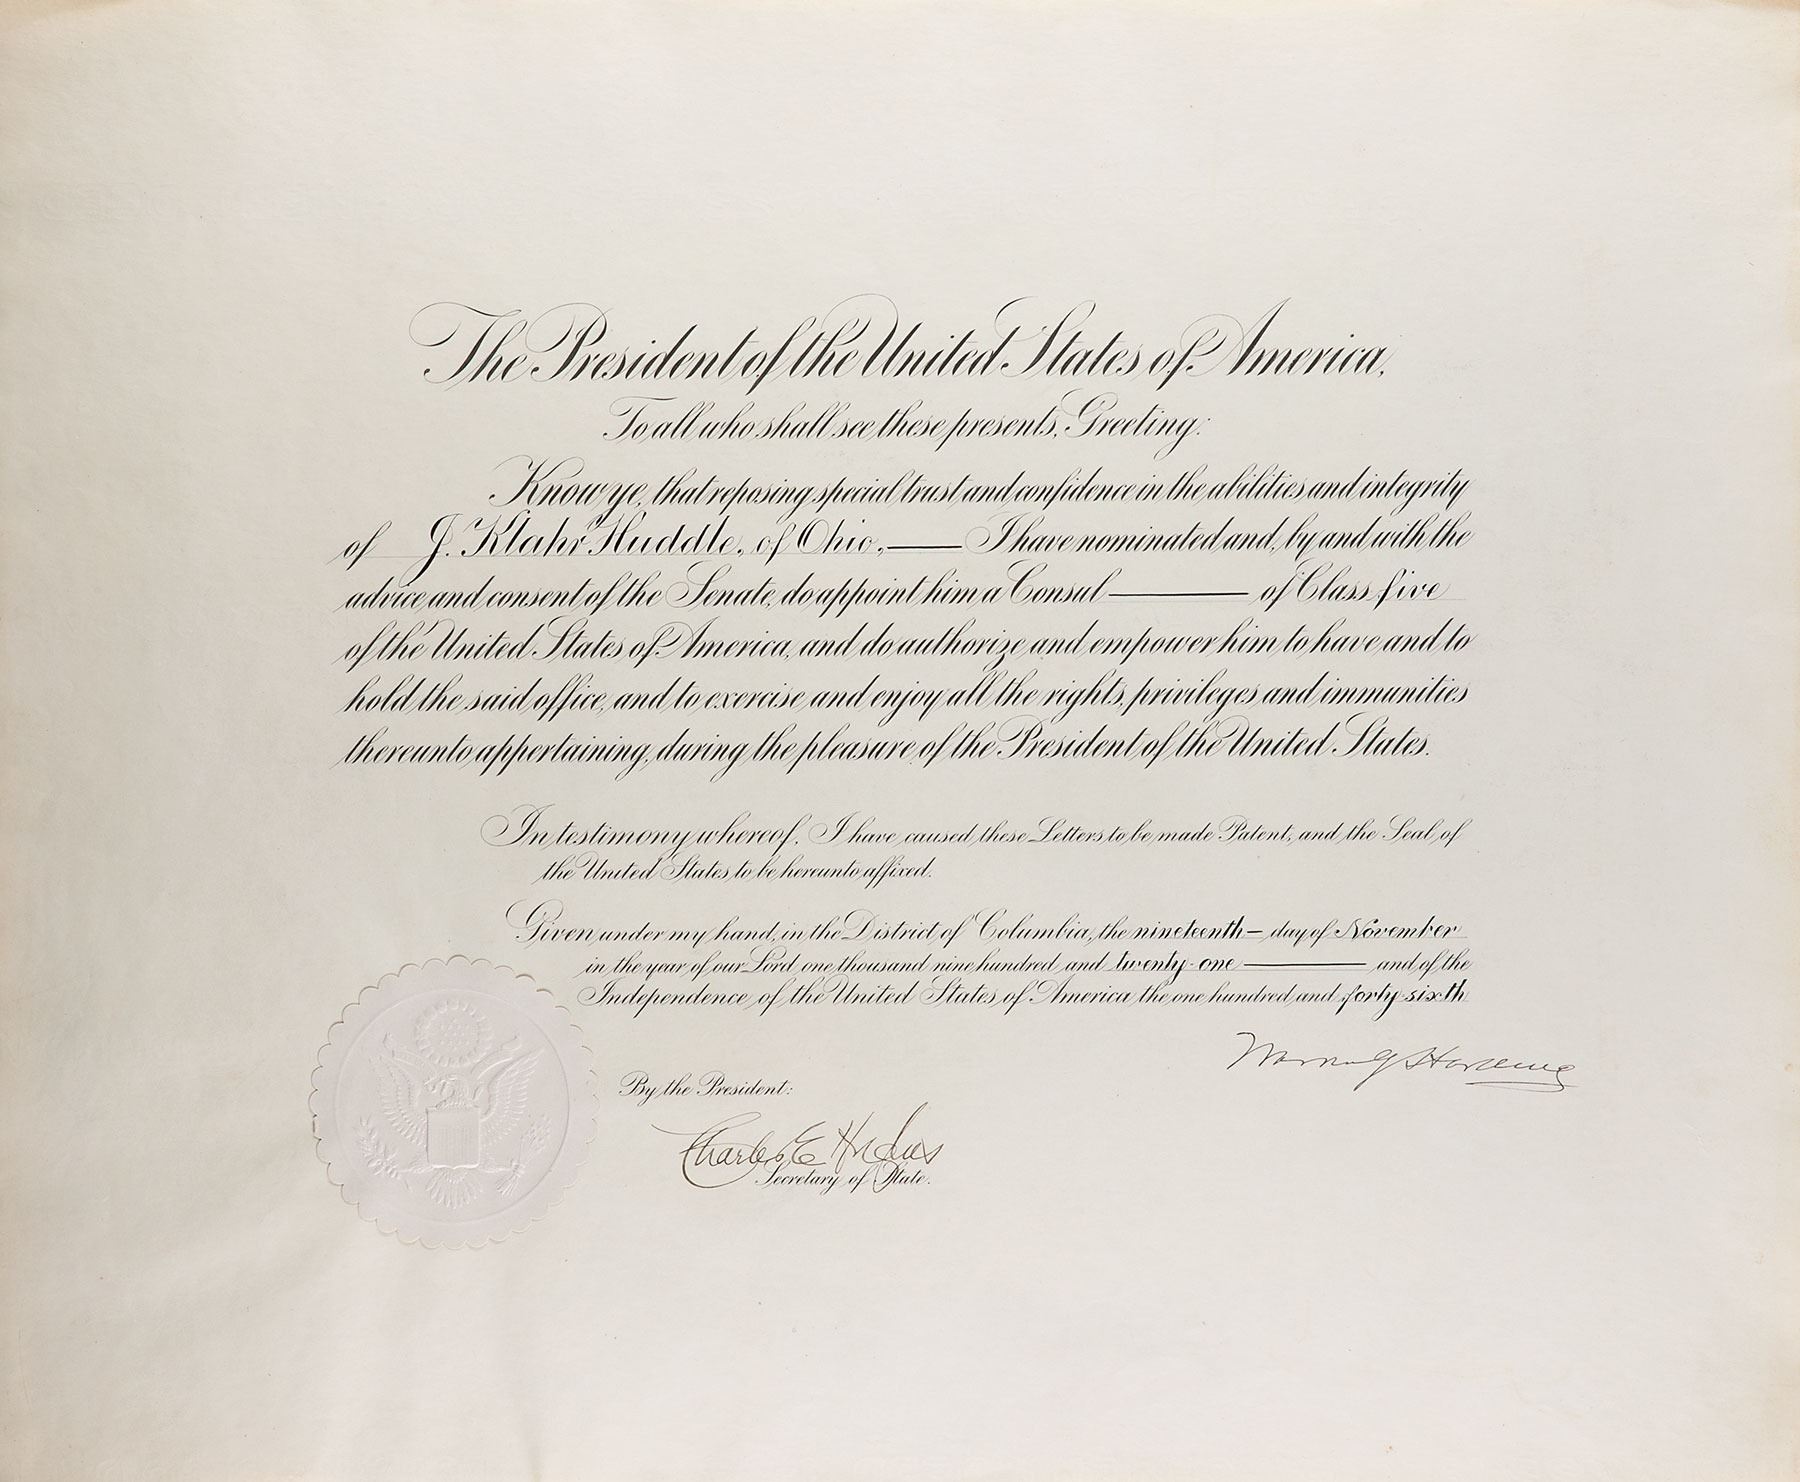 The President of the United States of America,
To all who shall see these presents, Greeting:
Know ye, that reposing special trust and confidence in the abilities and integrity
of J. Klahr Huddle, of Ohio, — I have nominated and, by and with the
advice and consent of the Senate, do appoint him a Consul — of Class five
of the United States of America, and do authorize and empower him to have and to
hold the said office, and to exercise and enjoy all the rights, privileges and immunities
thereunto appertaining, during the pleasure of the President of the United States.
In testimony whereof, I have caused these Letters to be made Patent, and the Seal of
the United States to be hereunto affixed.
Given under my hand, in the District of Columbia, the nineteenth — day of November
in the year of our Lord one thousand nine hundred and twenty-one — and of the
Independence of the United States of America the one hundred and forty-sixth
Warren G Harding
By the President:
Charles E Hughes
Secretary of State.